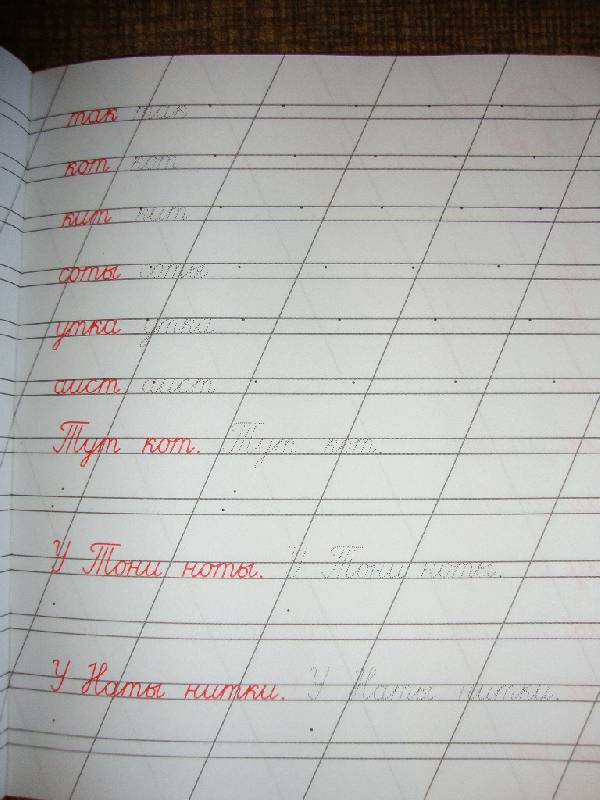 так так
кот кот
кит кит
соты соты
утка утка
аист аист
Тут кот. Тут кот.
У Тони ноты. У Тони ноты.
У Наты нитки. У Наты нитки.